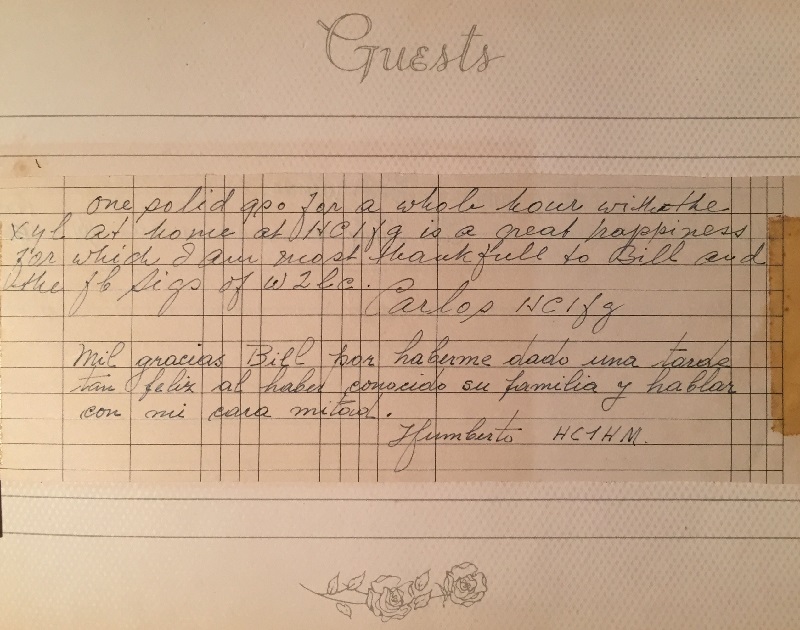 Guests
one solid qso for a whole hour with the
xyl at home at HC1fg is a great happiness
for which I am most thankfull to Bill and
the fb sigs of W2bc.
Carlos HC1fg
Mil gracias Bill por haberme dado una tarde
tan feliz al haber conocido su familia y hablar
con mi cara mitad.
Humberto HC1HM.